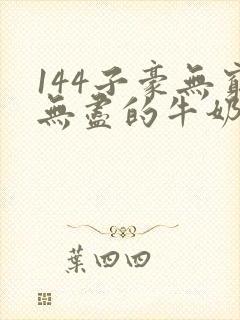 144子豪無窮
無盡的牛奶
葉四四